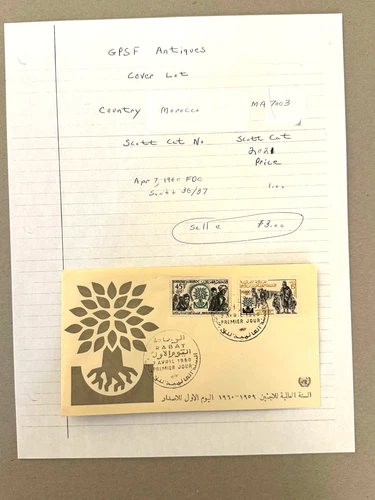 GPSF Antiques
Cover Lot
Country Morocco MA 7003
Scott Cat No Scott Cat
2021
Price
Apr 7, 1960 FDC
Scott 36/37 1.00
Sell @ $3.00
45F
RABAT
اليوم الأول
AVRIL 1960
PREMIER JOUR
PREMIER JOUR
السنة العالمية للاجئين ١٩٥٩-١٩٦٠ اليوم الأول للاصدار